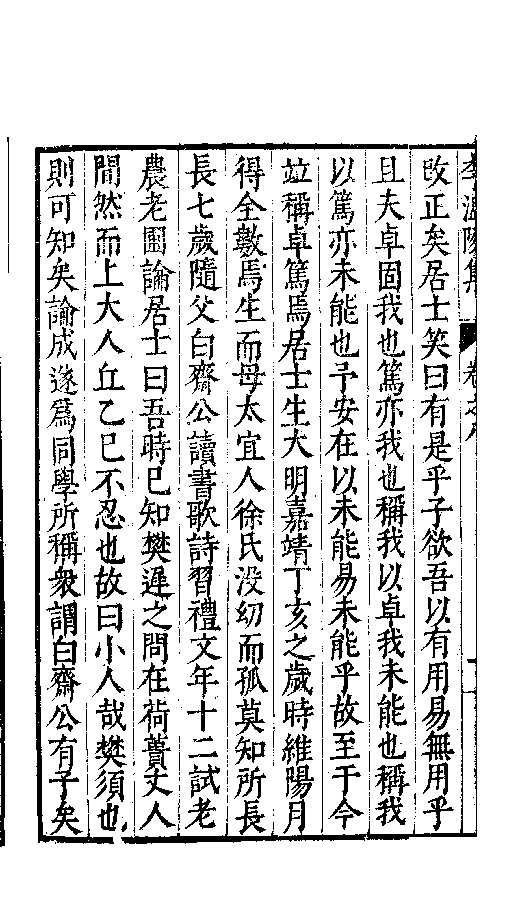 李溫陵集 卷之八
改正矣居士笑曰有是乎子欲吾以有用易無用乎
且夫卓固我也篤亦我也稱我以卓我未能也稱我
以篤亦未能也予安在以未能易未能乎故至于今
竝稱卓篤焉居士生大明嘉靖丁亥之歲時維陽月
得全數焉生而母太宜人徐氏没幼而孤莫知所長
長七歲隨父白齋公讀書歌詩習禮文年十二試老
農老圃論居士曰吾時已知樊遲之問在荷蕢丈人
間然而上大人丘乙已不忍也故曰小人哉樊須也
則可知矣論成遂爲同學所稱衆謂白齋公有子矣